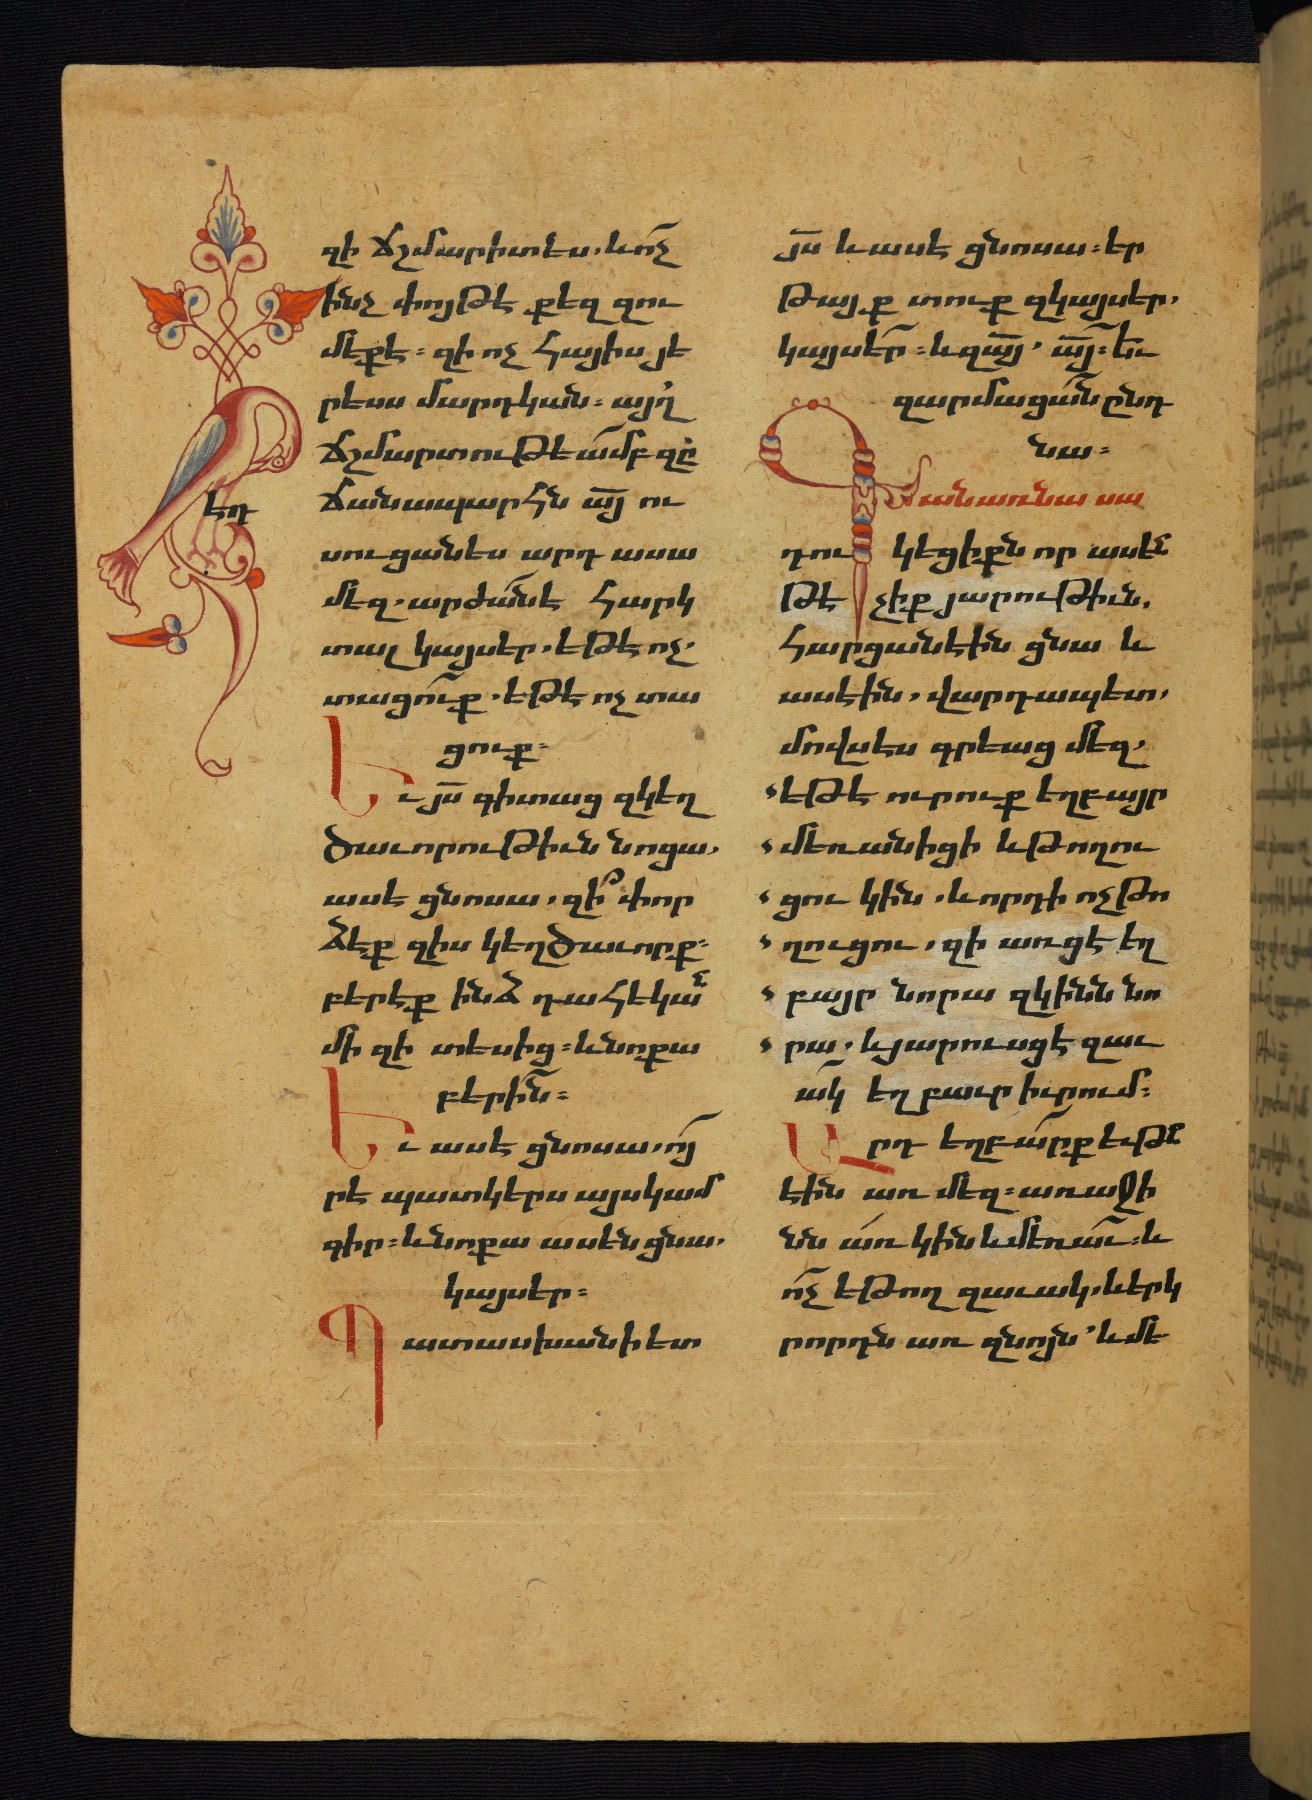 զի ճշմարիտ ես. և ո՛չ
ինչ փոյթ է քեզ զու
մեքէ։ զի ոչ հայիս յե
րեսս մարդկան։ այղ
ճշմարտութեամբ զը
ճանապարհն այ ու
սուցանես արդ ասա
մեզ. արժան է հարկ
տալ կայսեր. եթէ ոչ.
տացուք. եթէ ոչ տա
ցուք։
Եւ յս գիտաց զկեղ
ծաւորութիւն նոցա.
ասէ ցնոսա. զի՞ փոր
ձէք զիս կեղծաւորք։
բերէք ինձ դահեկան
մի զի տեսից։ և նոքա
բերին։
Եւ ասէ ցնոսա. ոյ
րէ պատկերս այս կամ
գիր։ և նոքա ասեն ցնա.
կայսեր։
Պատասխանի ետ
եդ
յս և ասէ ցնոսա։ եր
թայք տուք զկայսեր.
կայսեր։ և զայ. այ։ եւ
զարմացան ընդ
նա։
Յանառնա սա
դու կեցիքն որ ասեն
թէ չիք յարութիւն.
հարցանէին ցնա և
ասէին. վարդապետ.
մովսես գրեաց մեզ.
եթէ ուրուք եղբայր
մեռանիցի և թողու
ցու կին. և որդի ոչ թո
ղուցու. զի առցէ եղ
բայր նորա զկինն նո
րա. և յարուսցէ զաւ
ակ եղբաւր իւրում։
Արդ եղբարք եւթն
էին առ մեզ։ առաջի
նն առ կին և մեռաւ։ և
ո՛չ եթող զաւակ. և երկ
րորդն առ զնոյն. և մե